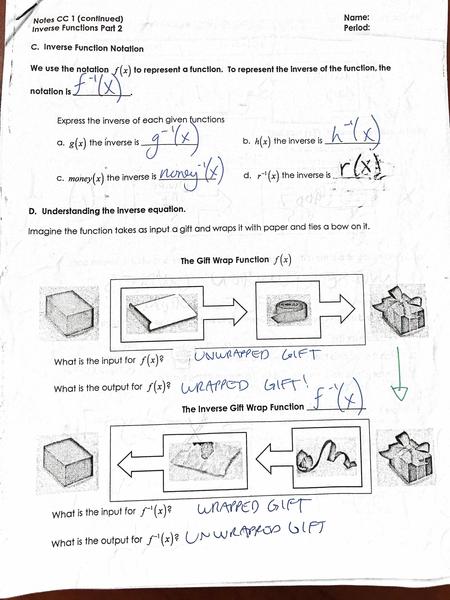 Notes CC 1 (continued) Name:
Inverse Functions Part 2 Period:
C. Inverse Function Notation
We use the notation f(x) to represent a function. To represent the inverse of the function, the
notation is f⁻¹(x).
Express the inverse of each given functions
a. g(x) the inverse is g⁻¹(x) b. h(x) the inverse is h⁻¹(x)
c. money(x) the inverse is money⁻¹(x) d. r⁻¹(x) the inverse is r(x)
D. Understanding the inverse equation.
Imagine the function takes as input a gift and wraps it with paper and ties a bow on it.
The Gift Wrap Function f(x)
What is the input for f(x)? UNWRAPPED GIFT
What is the output for f(x)? WRAPPED GIFT!
The Inverse Gift Wrap Function f⁻¹(x)
What is the input for f⁻¹(x)? WRAPPED GIFT
What is the output for f⁻¹(x)? UNWRAPPED GIFT